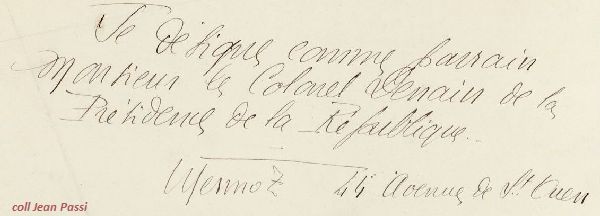 Je désigne comme parrain
Monsieur le Colonel Denain de la
Présidence de la République.
Mermoz 44 Avenue de St Ouen
coll Jean Passi